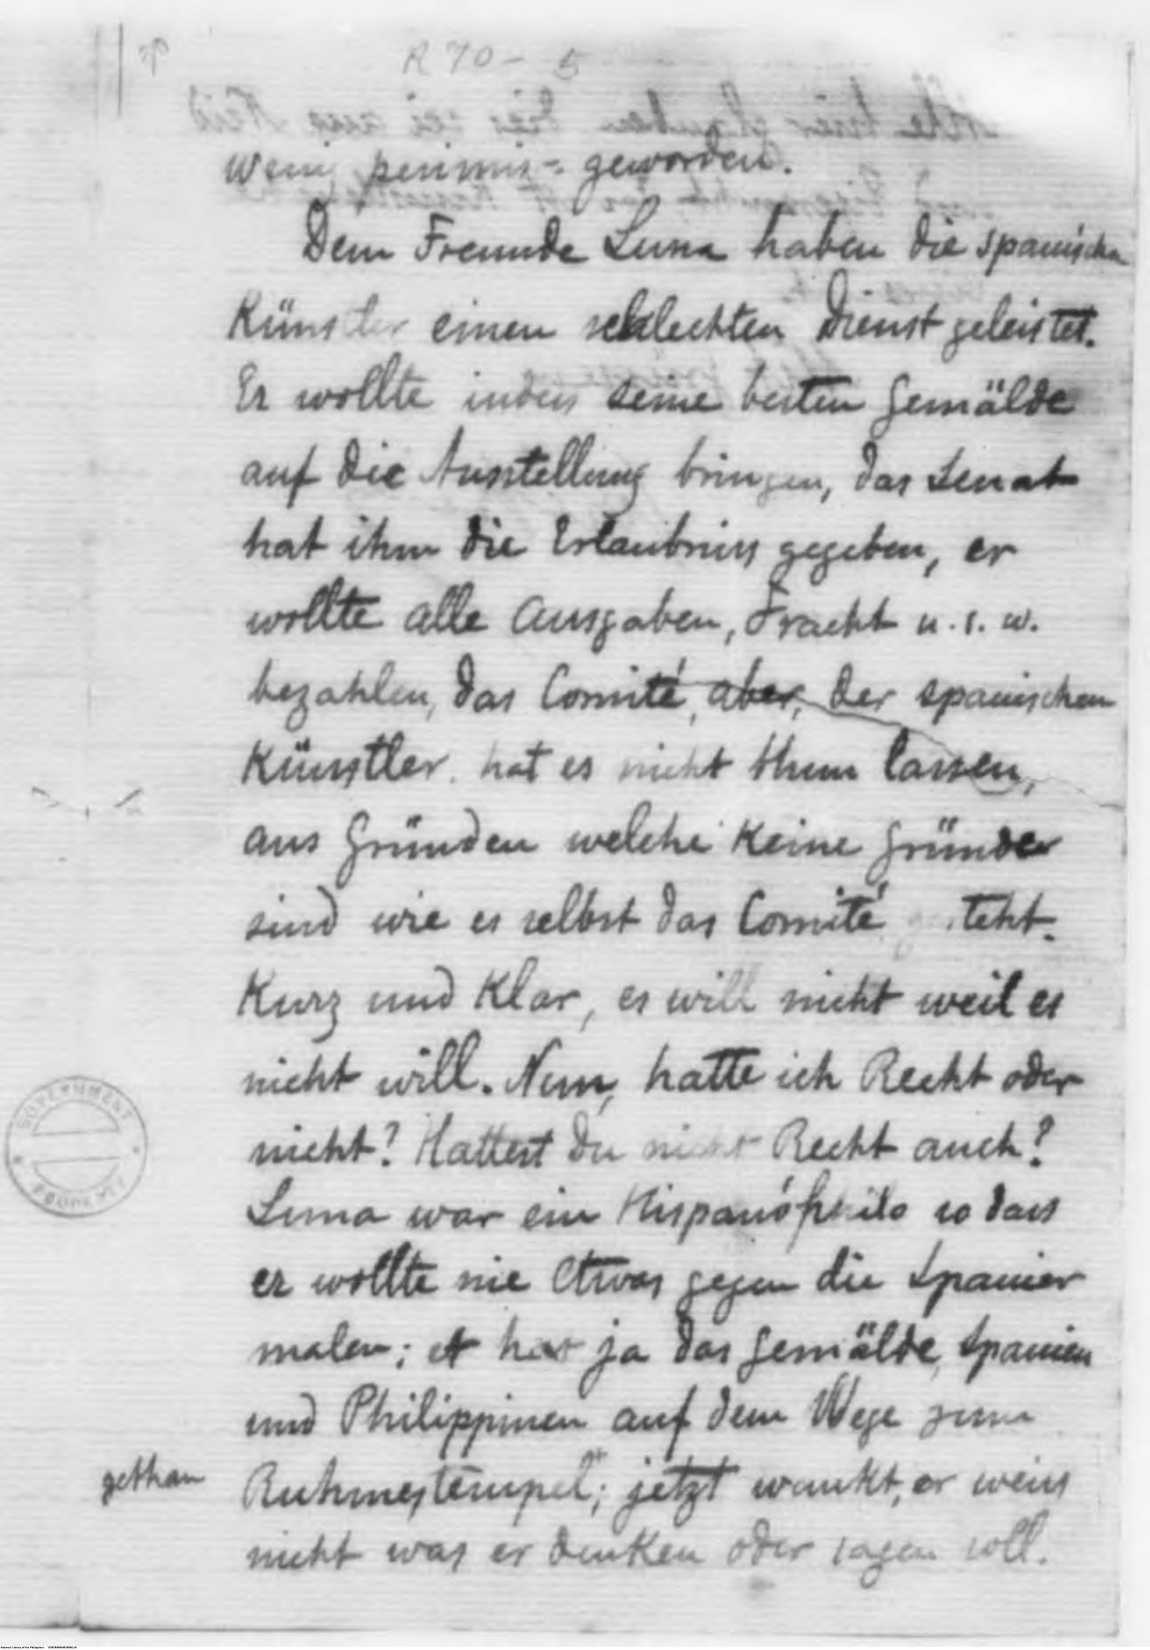 R 70 - 5
geworden.
Dem Freunde Luna haben die spanischen
Künstler einen schlechten Dienst geleistet.
Er wollte indess seine besten Gemälde
auf die Ausstellung bringen, das Senat
hat ihm die Erlaubniss gegeben, er
wollte alle Ausgaben, Fracht u. s. w.
bezahlen, das Comité, aber, der spanischen
Künstler hat es nicht thun lassen,
aus Gründen welche keine Gründe
sind wie es selbst das Comité gesteht.
Kurz und Klar, es will nicht weil es
nicht will. Nun, hatte ich Recht oder
nicht? Hattest Du nicht Recht auch?
Luna war ein Hispanóphilo so dass
er wollte nie Etwas gegen die Spanier
malen; er hat ja das Gemälde, Spanien
und Philippinen auf dem Wege zum
gethan Ruhmestempel"; jetzt wankt, er weiss
nicht was er denken oder sagen soll.
GOVERNMENT PROPERTY